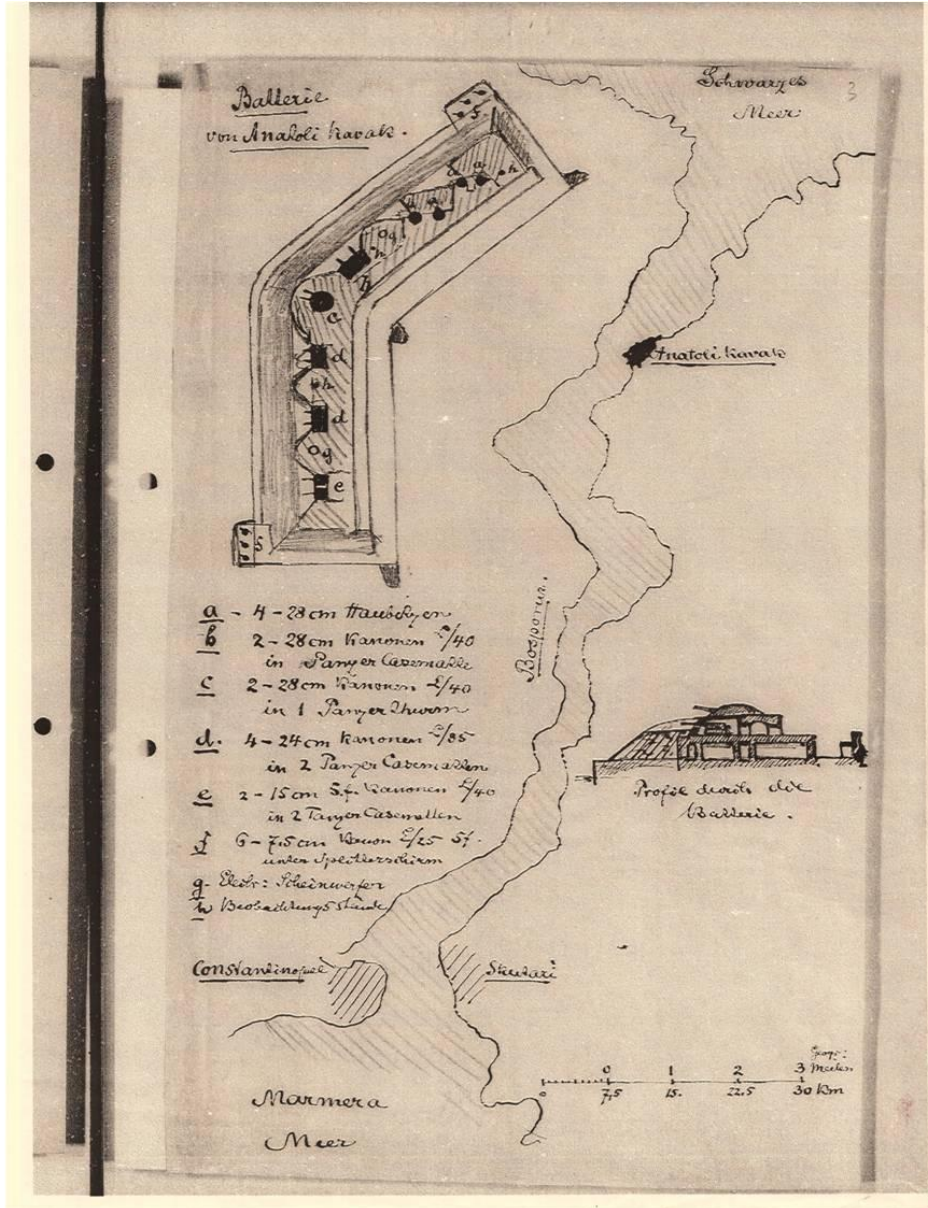 Batterie
von Anatoli Kavak.
Schwarzes
Meer
3
Anatoli Kavak
Bosporus.
a - 4 - 28 cm Haubitzen
b 2 - 28 cm Kanonen L/40
in Panzer Casematte
c 2 - 28 cm Kanonen L/40
in 1 Panzer Thurm
d. 4 - 24 cm Kanonen L/35
in 2 Panzer Casematten
e 2 - 15 cm S.f. Kanonen L/40
in 2 Panzer Casematten
f 6 - 7,5 cm L/25 Sf.
unter Splitterschirm
g - Elektr: Scheinwerfer
h Beobachtungsstände
Profil durch die
Batterie.
Constantinopel
Skutari
Geogr:
0 1 2 3 Meilen
0 7,5 15. 22.5 30 Km
Marmera
Meer